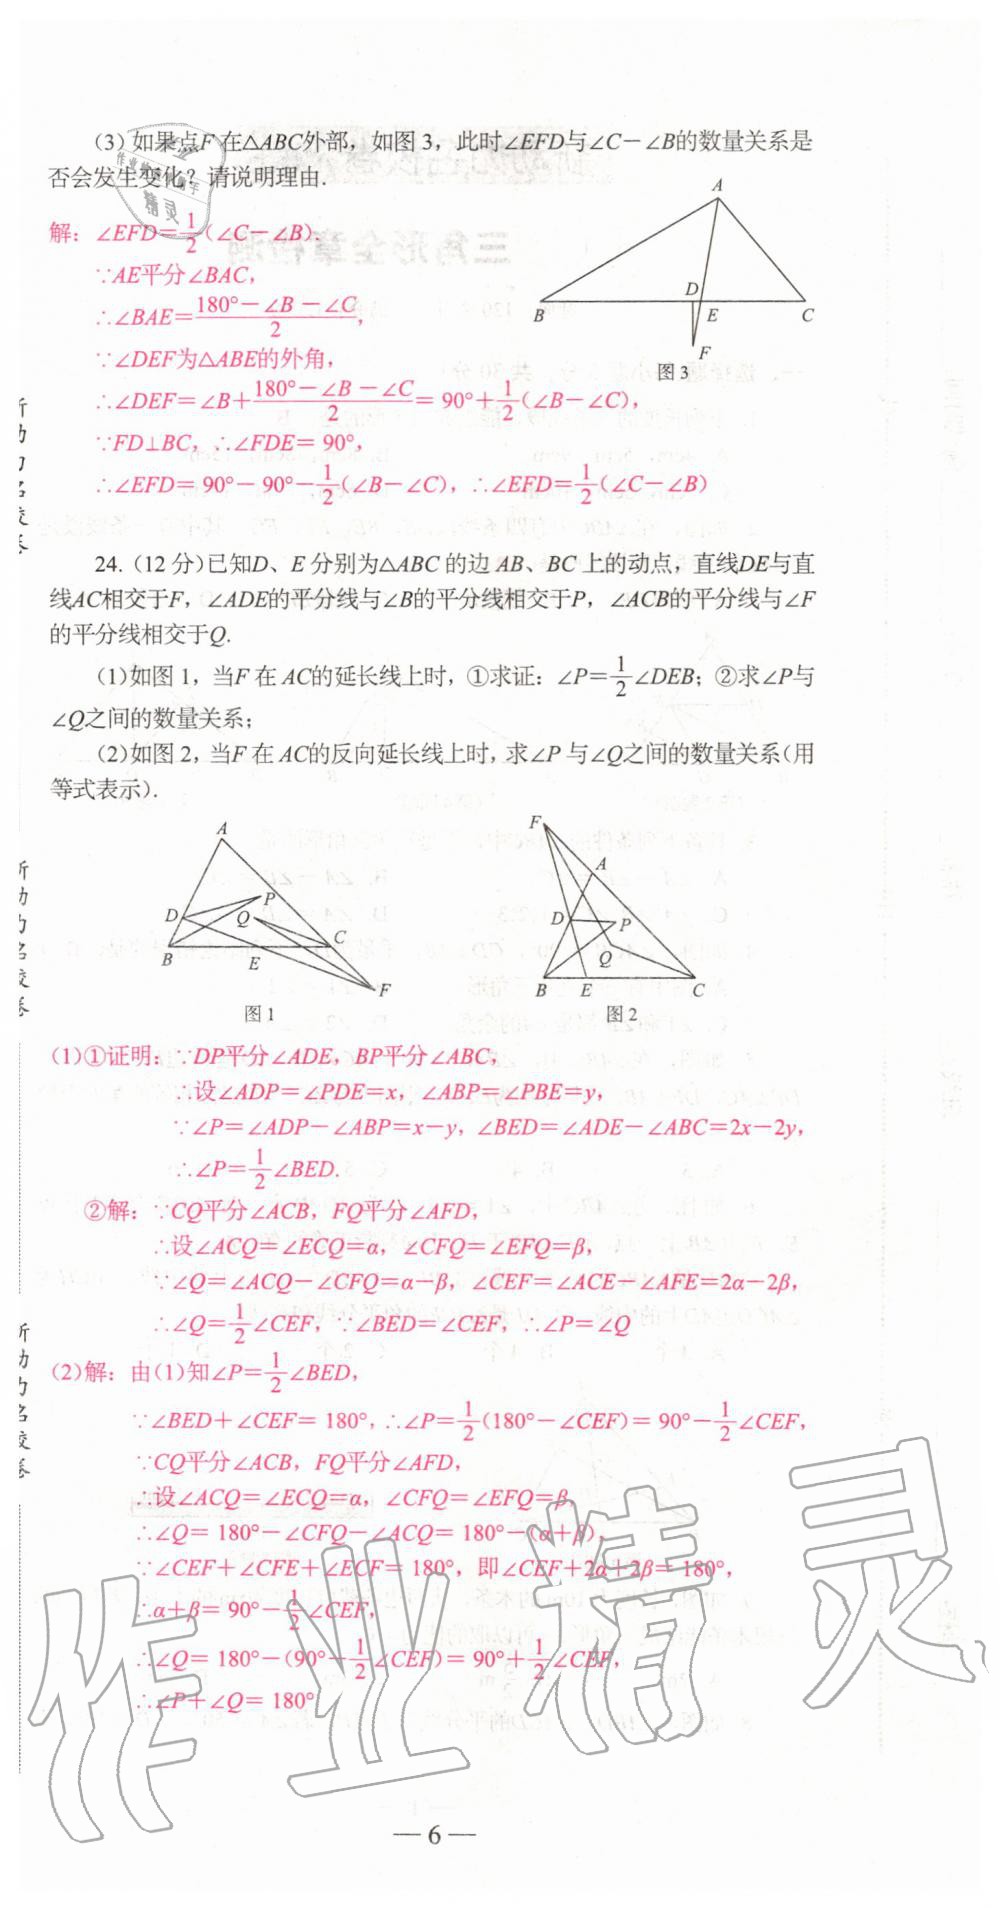 (3) 如果点F在△ABC外部，如图3，此时∠EFD与∠C－∠B的数量关系是
否会发生变化？请说明理由.
解：∠EFD=1/2(∠C－∠B).
∵AE平分∠BAC，
∴∠BAE=(180°－∠B－∠C)/2，
∵∠DEF为△ABE的外角，
∴∠DEF=∠B+(180°－∠B－∠C)/2=90°+1/2(∠B－∠C)，
∵FD⊥BC，∴∠FDE=90°，
∴∠EFD=90°－90°－1/2(∠B－∠C)，∴∠EFD=1/2(∠C－∠B)
A
B
D
E
C
F
图3
24.（12分）已知D、E分别为△ABC的边AB、BC上的动点，直线DE与直
线AC相交于F，∠ADE的平分线与∠B的平分线相交于P，∠ACB的平分线与∠F
的平分线相交于Q.
(1)如图1，当F在AC的延长线上时，①求证：∠P=1/2∠DEB；②求∠P与
∠Q之间的数量关系；
(2)如图2，当F在AC的反向延长线上时，求∠P与∠Q之间的数量关系(用
等式表示).
A
P
D
Q
B
C
E
F
图1
F
A
D
P
Q
B
E
C
图2
(1)①证明：∵DP平分∠ADE，BP平分∠ABC，
∴设∠ADP=∠PDE=x，∠ABP=∠PBE=y，
∵∠P=∠ADP－∠ABP=x－y，∠BED=∠ADE－∠ABC=2x－2y，
∴∠P=1/2∠BED.
②解：∵CQ平分∠ACB，FQ平分∠AFD，
∴设∠ACQ=∠ECQ=α，∠CFQ=∠EFQ=β，
∵∠Q=∠ACQ－∠CFQ=α－β，∠CEF=∠ACE－∠AFE=2α－2β，
∴∠Q=1/2∠CEF，∵∠BED=∠CEF，∴∠P=∠Q
(2)解：由(1)知∠P=1/2∠BED，
∵∠BED+∠CEF=180°，∴∠P=1/2(180°－∠CEF)=90°－1/2∠CEF，
∵CQ平分∠ACB，FQ平分∠AFD，
∴设∠ACQ=∠ECQ=α，∠CFQ=∠EFQ=β，
∴∠Q=180°－∠CFQ－∠ACQ=180°－(α+β)，
∵∠CEF+∠CFE+∠ECF=180°，即∠CEF+2α+2β=180°，
∴α+β=90°－1/2∠CEF，
∴∠Q=180°－(90°－1/2∠CEF)=90°+1/2∠CEF，
∴∠P+∠Q=180°
作业精灵
— 6 —